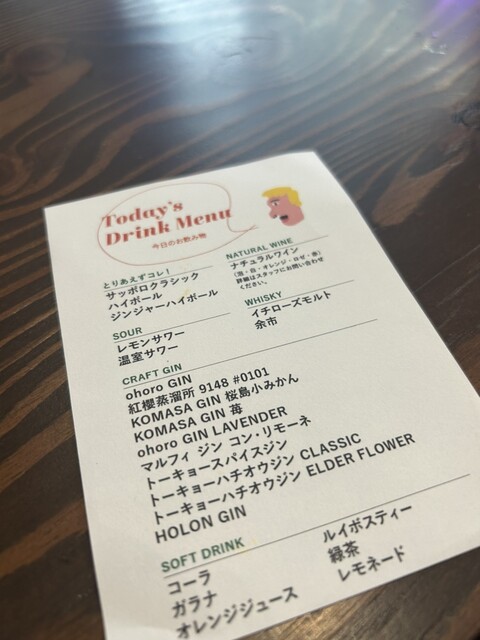 Today's
Drink Menu
今日のお飲み物
とりあえずコレ!
サッポロクラシック
ハイボール
ジンジャーハイボール
NATURAL WINE
ナチュラルワイン
(泡・白・オレンジ・ロゼ・赤)
詳細はスタッフにお問い合わせ
ください。
SOUR
レモンサワー
温室サワー
WHISKY
イチローズモルト
余市
CRAFT GIN
ohoro GIN
紅櫻蒸溜所 9148 #0101
KOMASA GIN 桜島小みかん
KOMASA GIN 苺
ohoro GIN LAVENDER
マルフィ ジン コン・リモーネ
トーキョースパイスジン
トーキョーハチオウジン CLASSIC
トーキョーハチオウジン ELDER FLOWER
HOLON GIN
SOFT DRINK
コーラ
ガラナ
オレンジジュース
ルイボスティー
緑茶
レモネード